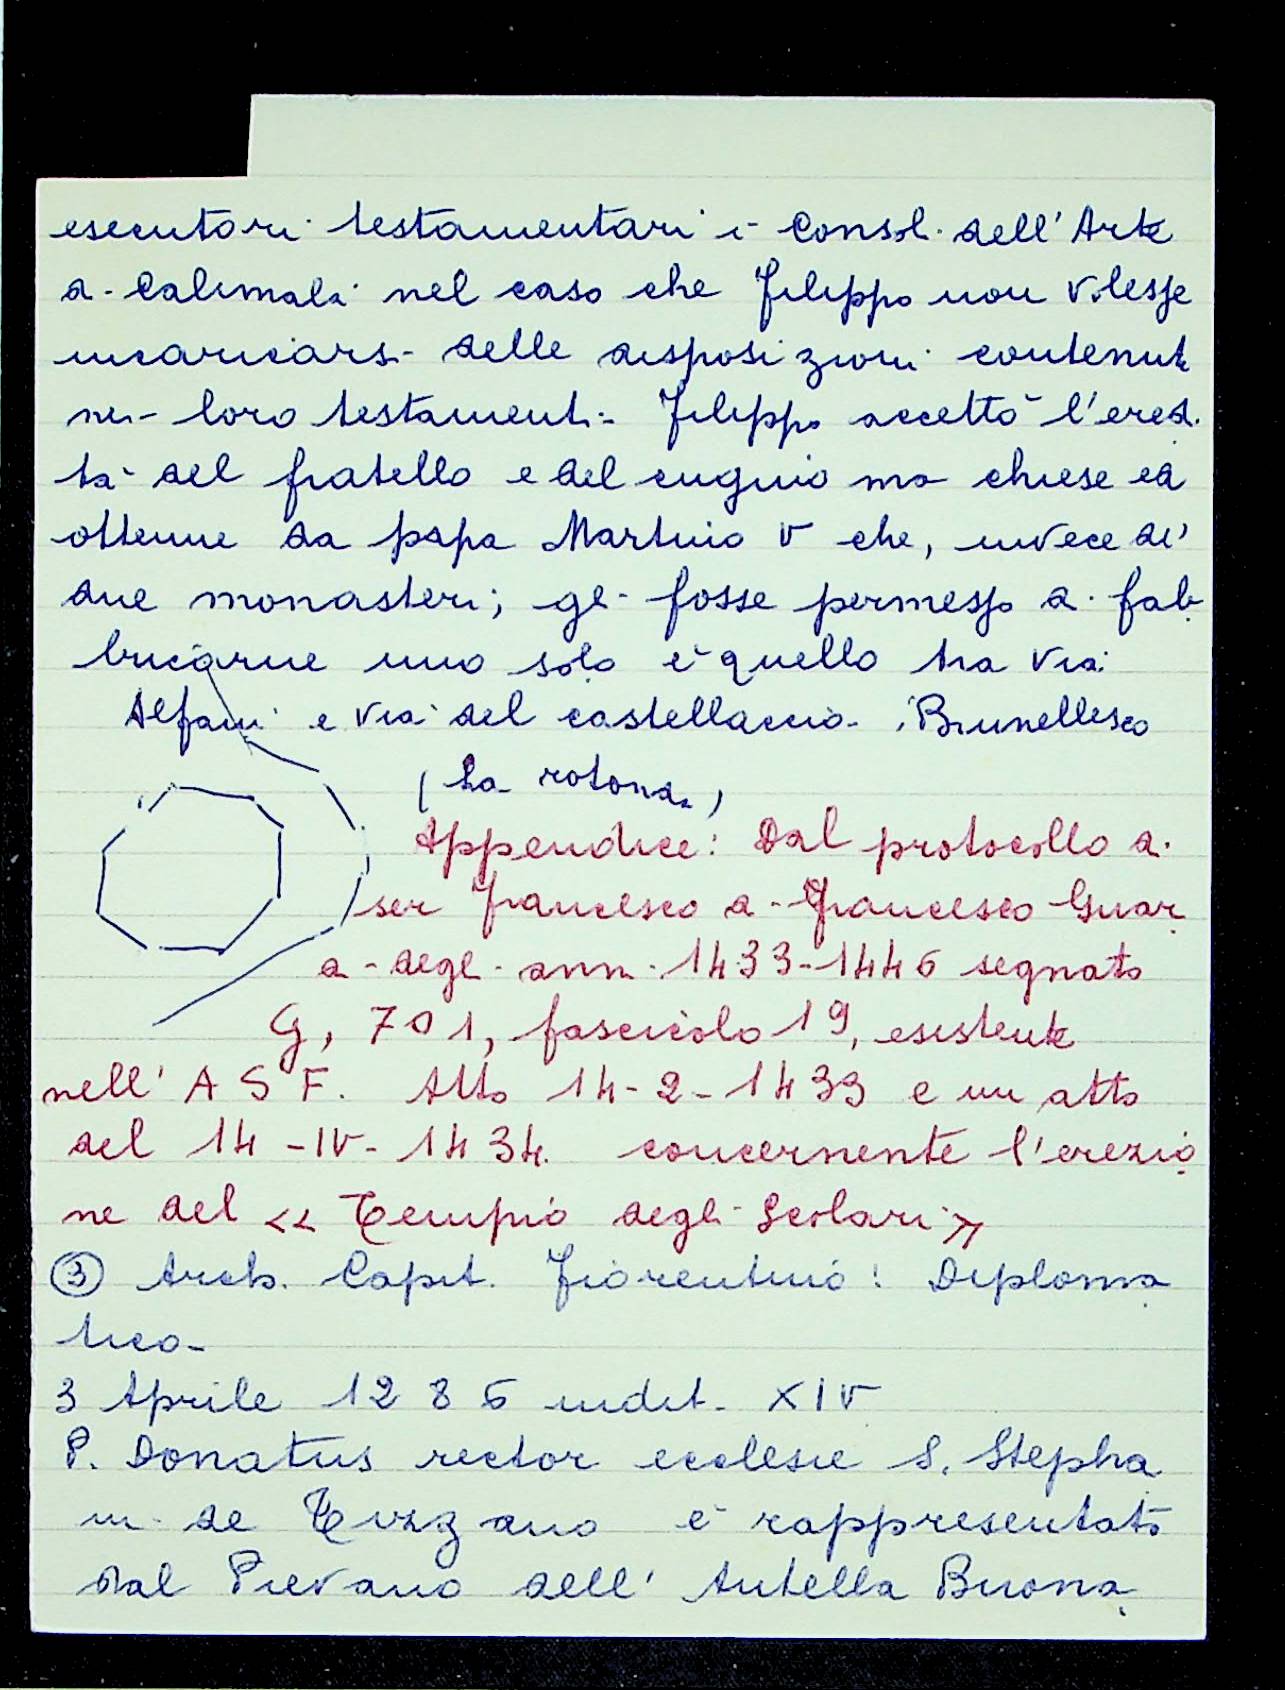 esecutori testamentari i Consoli dell'Arte
di Calimala nel caso che Filippo non volesse
incaricarsi delle disposizioni contenute
nei loro testamenti. Filippo accettò l'eredi
tà del fratello e del cugino ma chiese ed
ottenne da papa Martino V che, invece di
due monasteri, gli fosse permesso di fab
bricarne uno solo è quello tra via
Alfani e via del Castellaccio. Brunellesco
(La rotonda)
Appendice: Dal protocollo di
ser Francesco di Francesco Guar
di degli anni 1433-1446 segnato
G, 701, fascicolo 19, esistente
nell'ASF. Atto 14-2-1433 e un atto
del 14-IV-1434 concernente l'erezio
ne del << Tempio degli Scolari >>
③ Arch. Capit. Fiorentino: Diploma
tico-
3 Aprile 1286 indit. XIV
P. Donatus rector ecclesie S. Stepha
ni de Tizzano è rappresentato
dal Pievano dell'Antella Buona